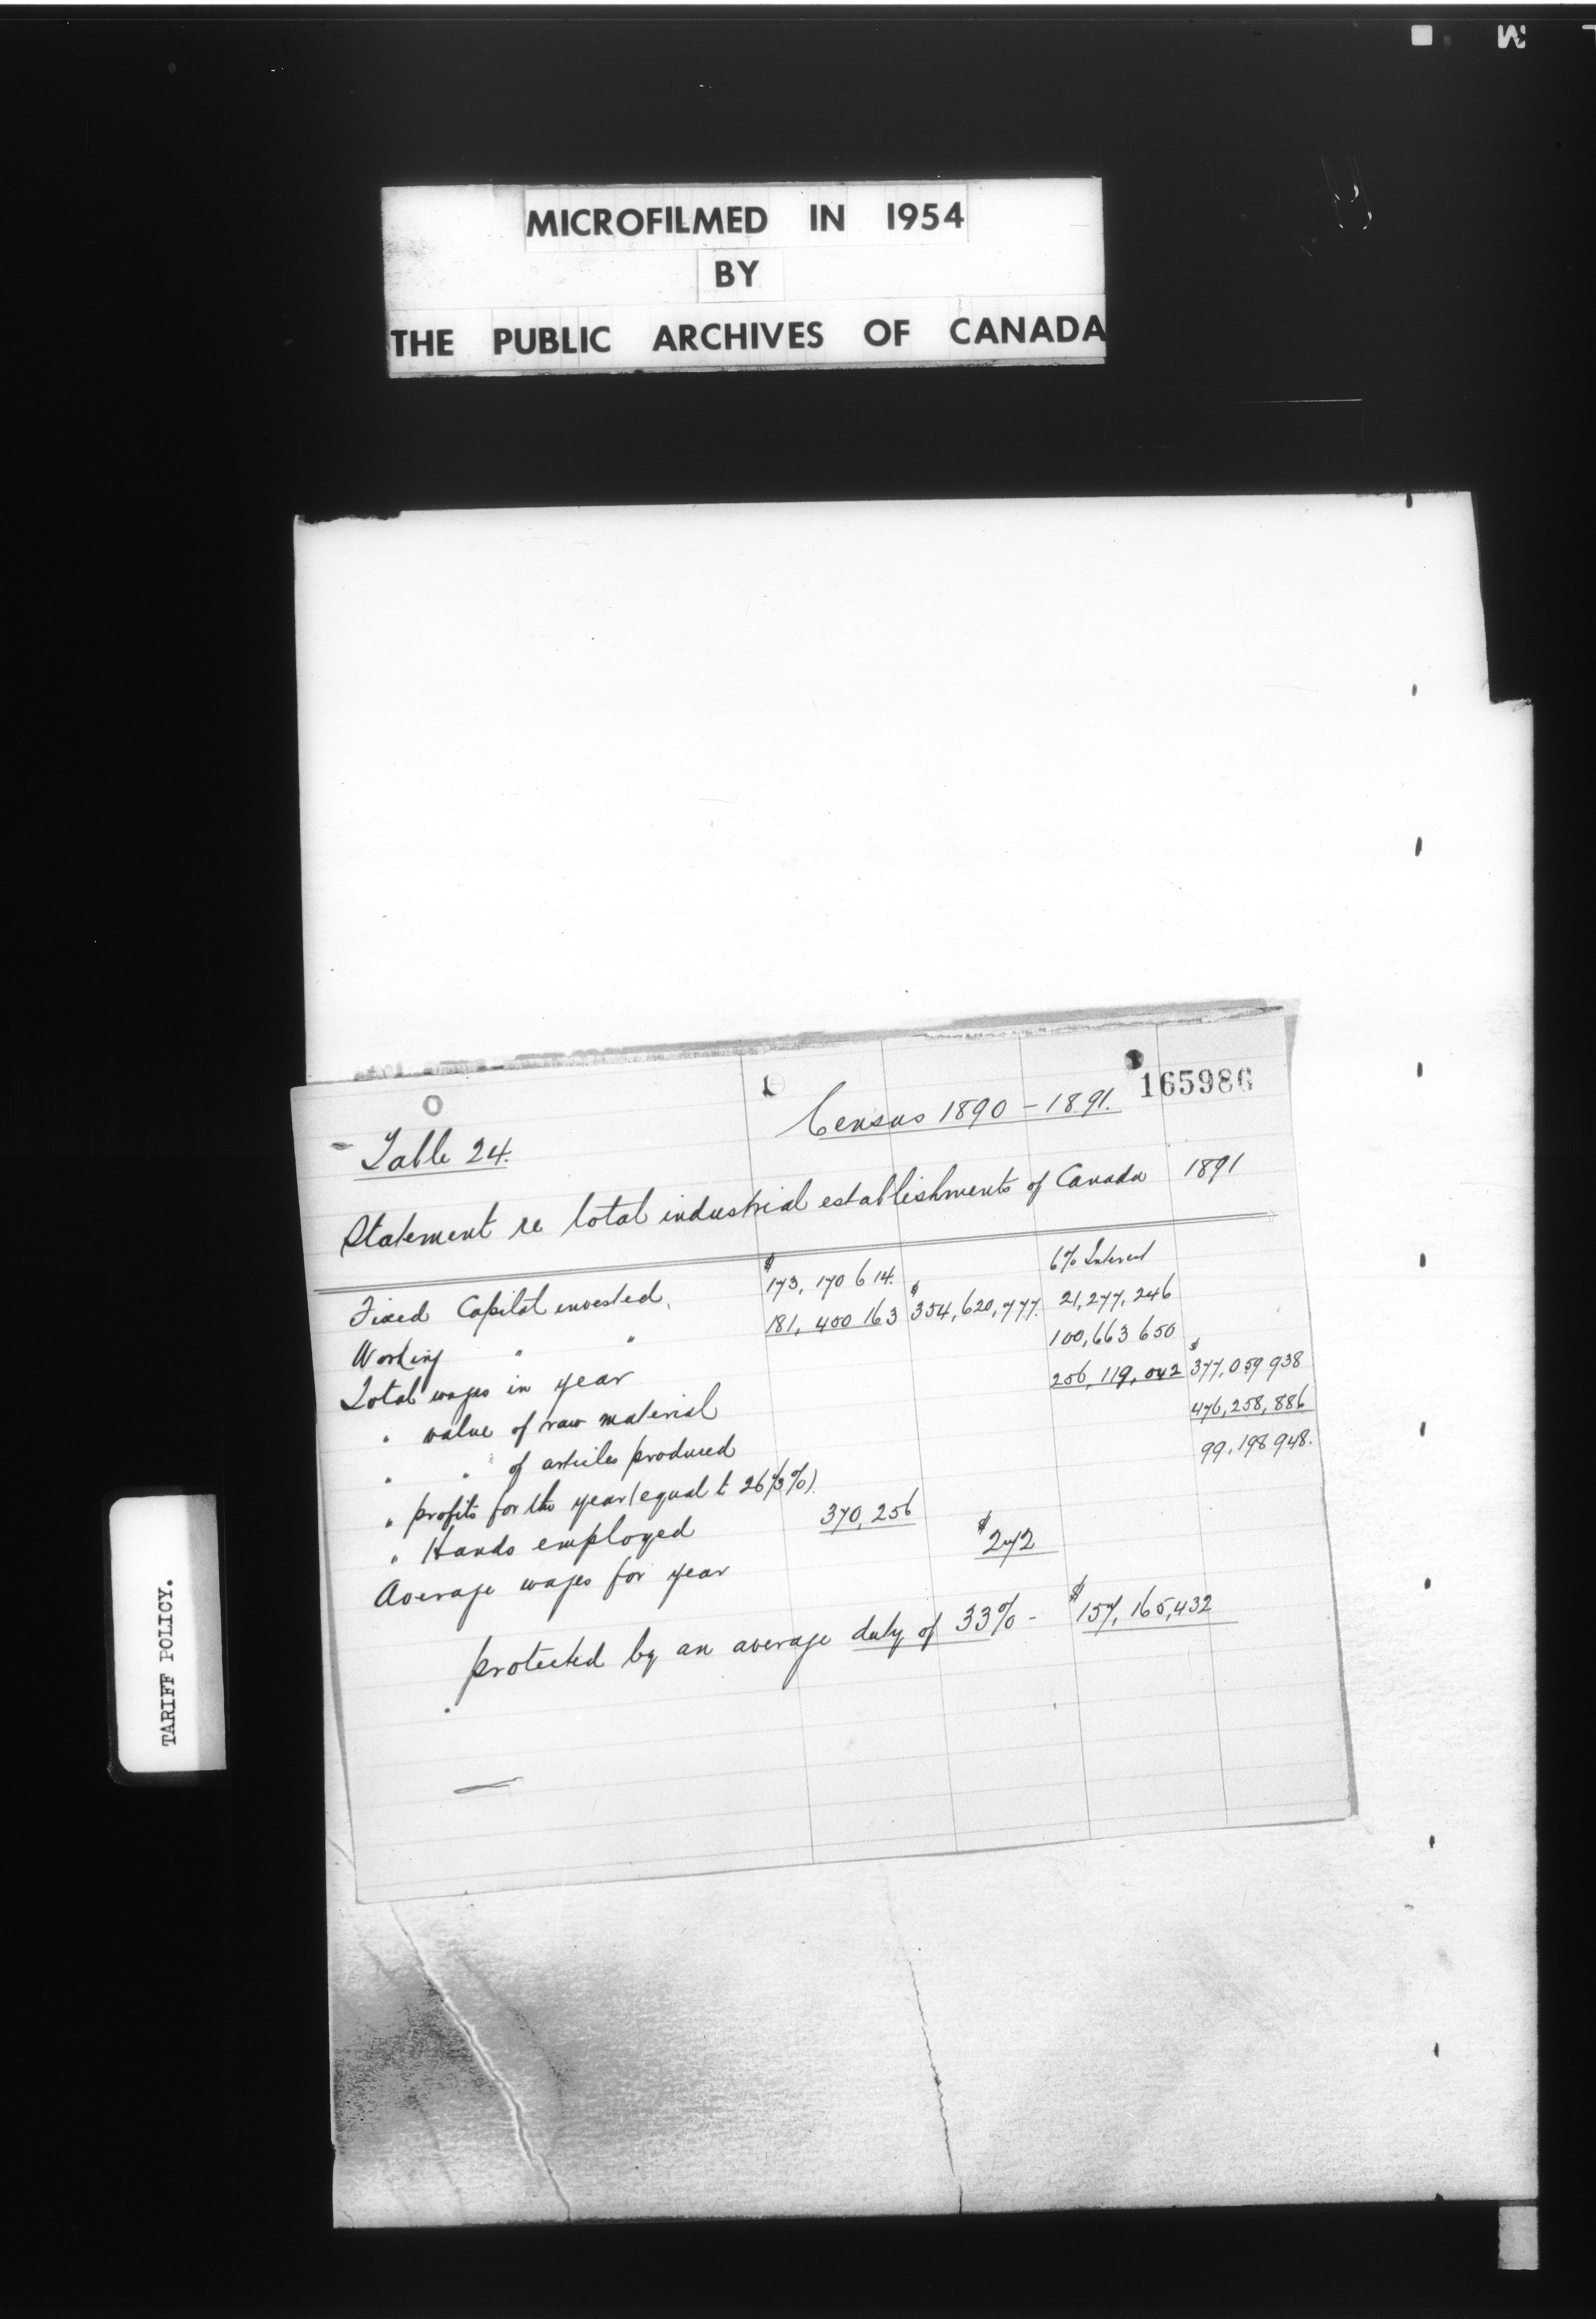 MICROFILMED IN 1954
BY
THE PUBLIC ARCHIVES OF CANADA
165986
Census 1890-1891.
Table 24.
Statement re total industrial establishments of Canada 1891
6% Interest
Fixed Capital invested, $173,170 614.
Working " " 181,400 163 $354,620,777. 21,277,246
Total wages in year 100,663 650
" value of raw material 256,119,042 $377,059 938
" " of articles produced 476,258,886
" profits for the year (equal to 26 1/3%). 99,198 948.
" Hands employed 370,256
Average wages for year $272
protected by an average duty of 33% - $157,165,432
TARIFF POLICY.